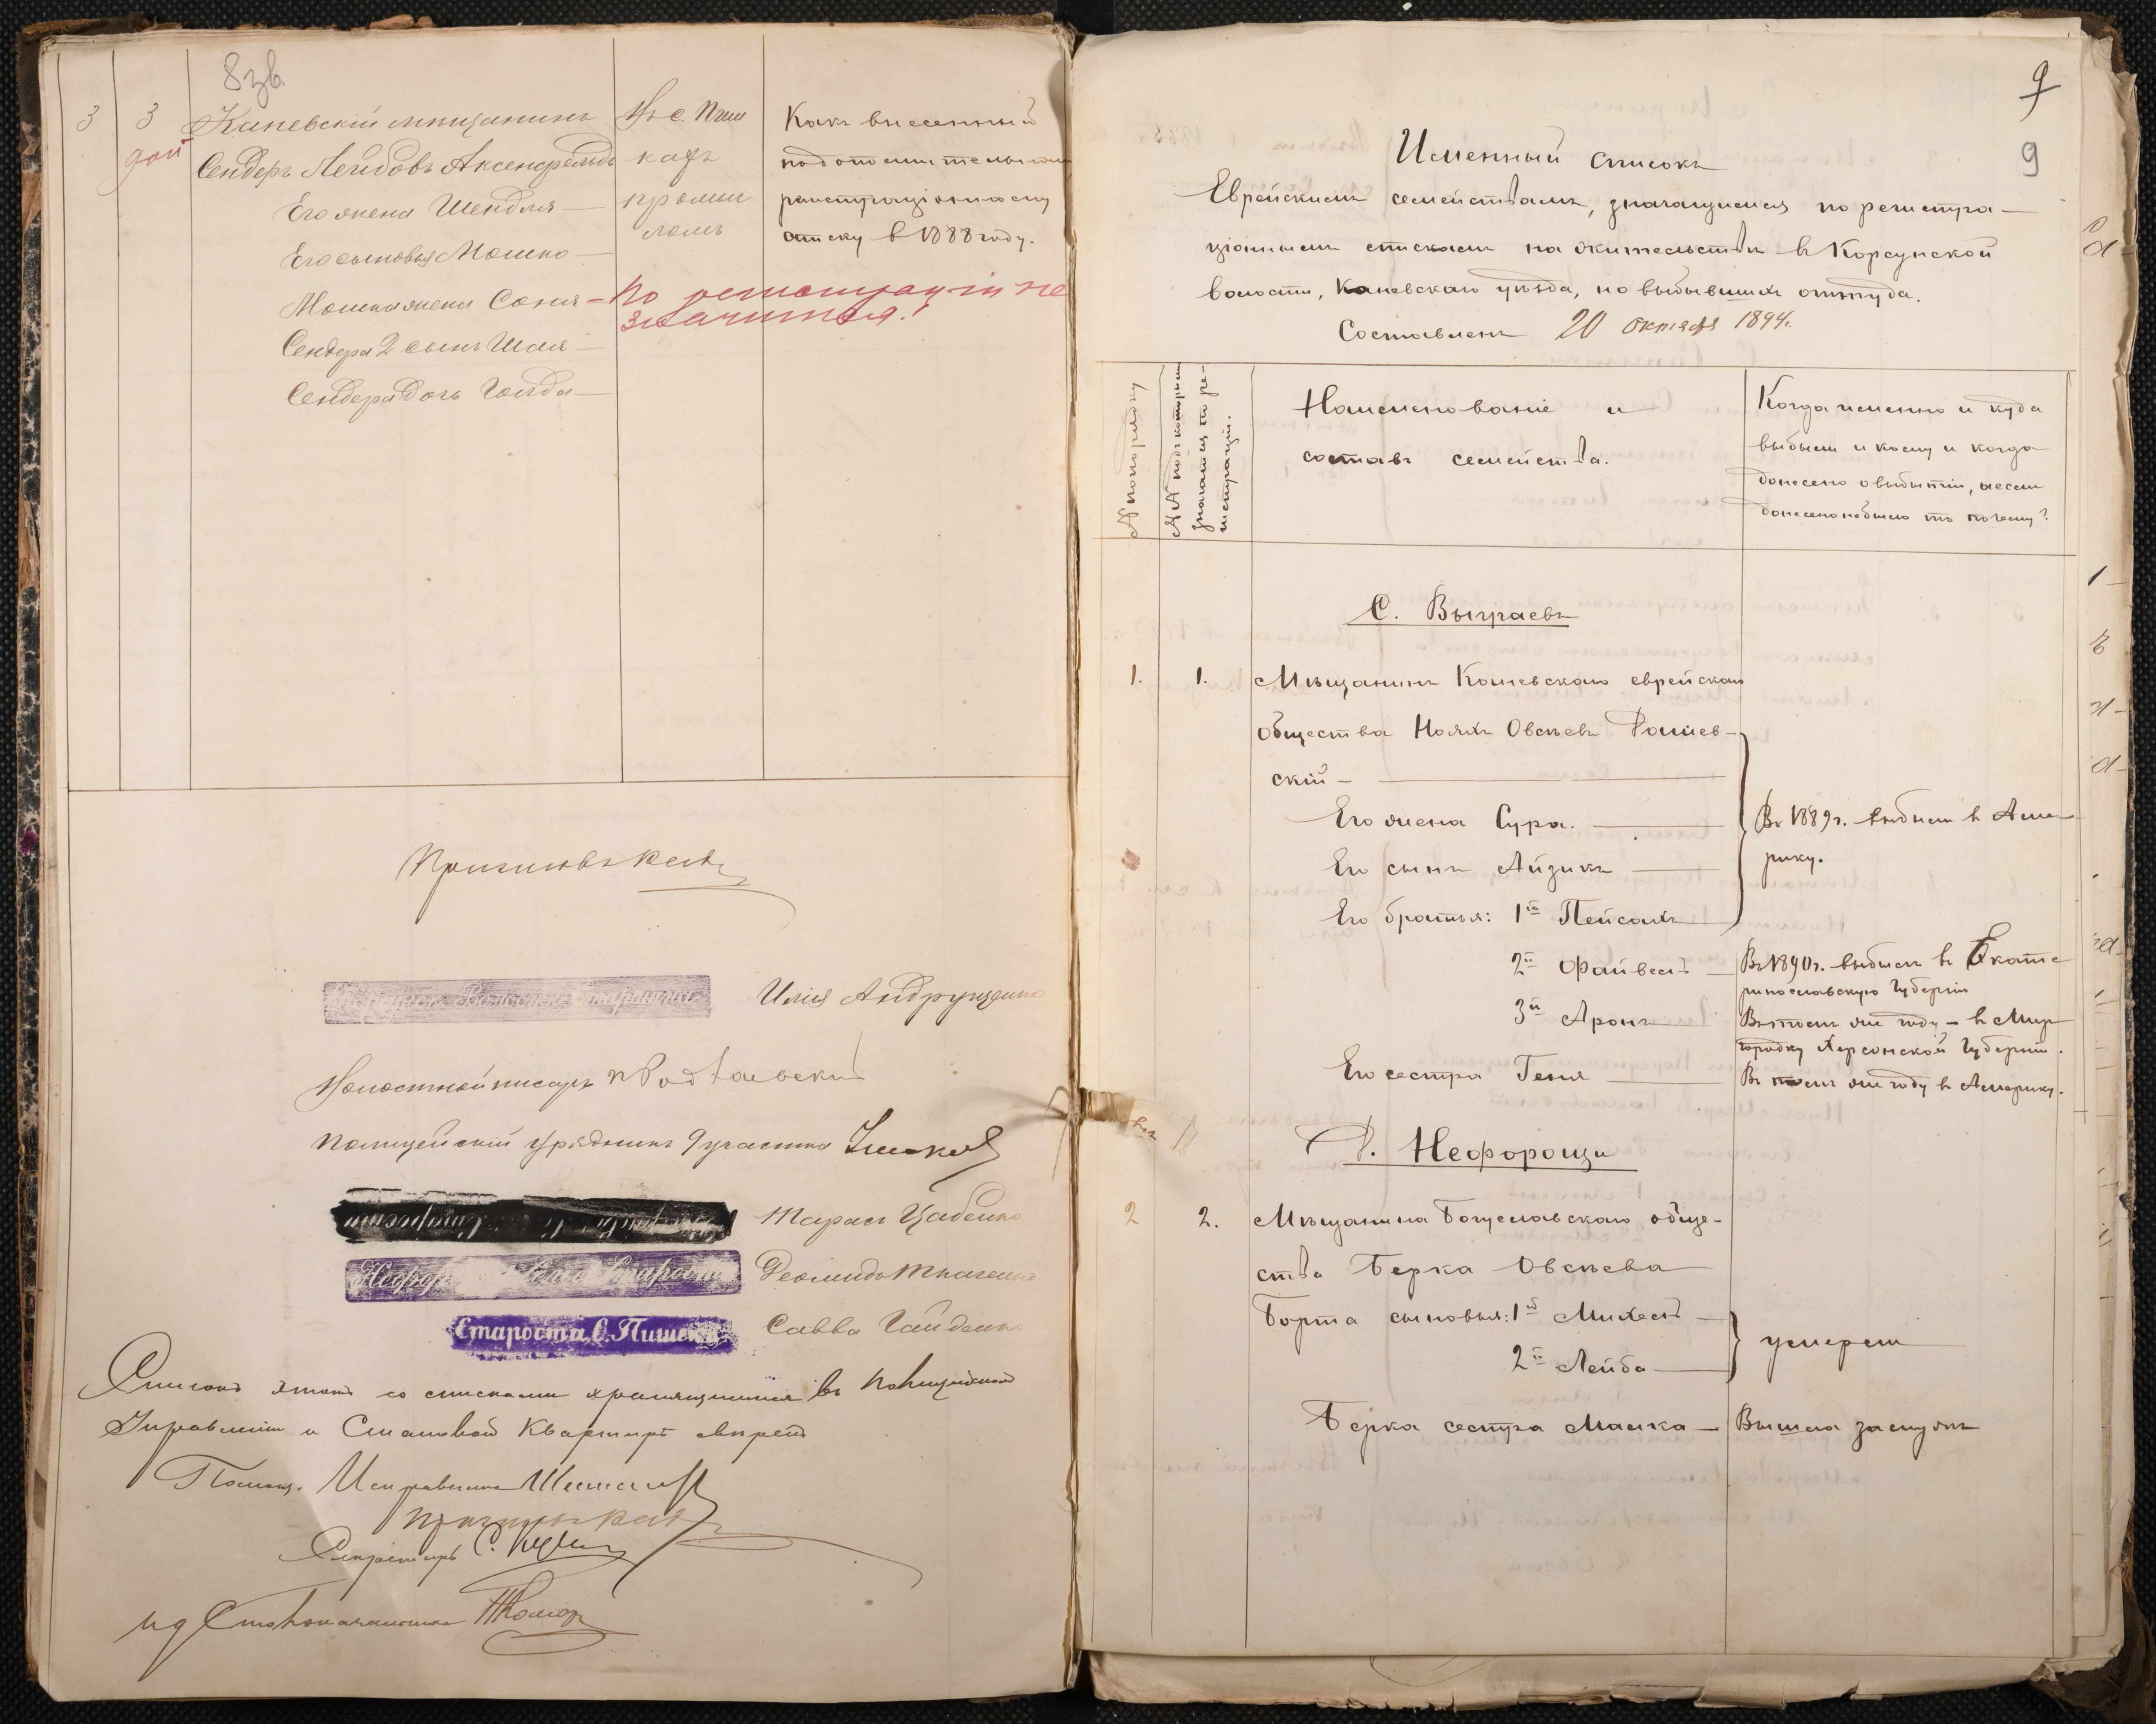 8 зв.
3 3 Каневскій мѣщанинъ
доп
Сендеръ Лейбовъ Аксенфельдъ
Его жена Шендля —
Его сыновья Мошко —
Мошка жена Соня —
Сендера 2 сынъ Шая —
Сендера дочь Гольда —
Въ с. Пеш
кахъ
По регистраціи не
значится!
Какъ внесенный
по дополнительному
регистраціонному
списку в 1888 году.
Илія Андрущенко
Волостной писарь
Полицейскій Урядникъ 9 участка
Тарасъ Цабенко
Леонидъ Ткаченко
Староста С. Пишекъ
Савва Гайденко
Списокъ этотъ со списками хранящимися въ Полицейскомъ
Управленіи и Становой Квартирѣ вѣренъ
Помощ. Исправника
Секретарь С.
ид Столоначальника
9
9
Именный списокъ
Еврейскимъ семействамъ, значащимся по регистра-
ціоннымъ спискамъ на жительствѣ в Корсунской
волости, Каневскаго уѣзда, но выбывшихъ оттуда.
Составленъ 20 октября 1894.
№ по порядку
№№ подъ которыми
значатся по ре-
гистраціи.
Наименованіе и
составъ семейства.
Когда именно и куда
выбыли и кому и когда
донесено о выбытіи, а если
донесено небыло то почему?
С. Выграевъ
1. 1. Мѣщанинъ Каневскаго еврейскаго
общества Нояхъ Овсѣевъ
скій —
Его жена Сура. —
Его сынъ Айзикъ —
Его братья: 1й Пейсахъ
Въ 1889 г. выбыли в Аме-
рику.
2й Файвель — Въ 1890 г. выбылъ в Екате
ринославскую Губернію
3й Аронъ — Въ томъ же году — в
Херсонской Губерніи.
Его сестра Геня — Въ томъ же году в Америку.
Д. Нефорощи
2 2. Мѣщанина Богуславскаго обще-
ства Берка Овсѣева
Борта сыновья: 1й Михель —
2й Лейба —
умерли
Берка сестра Малка — Вышла замужъ